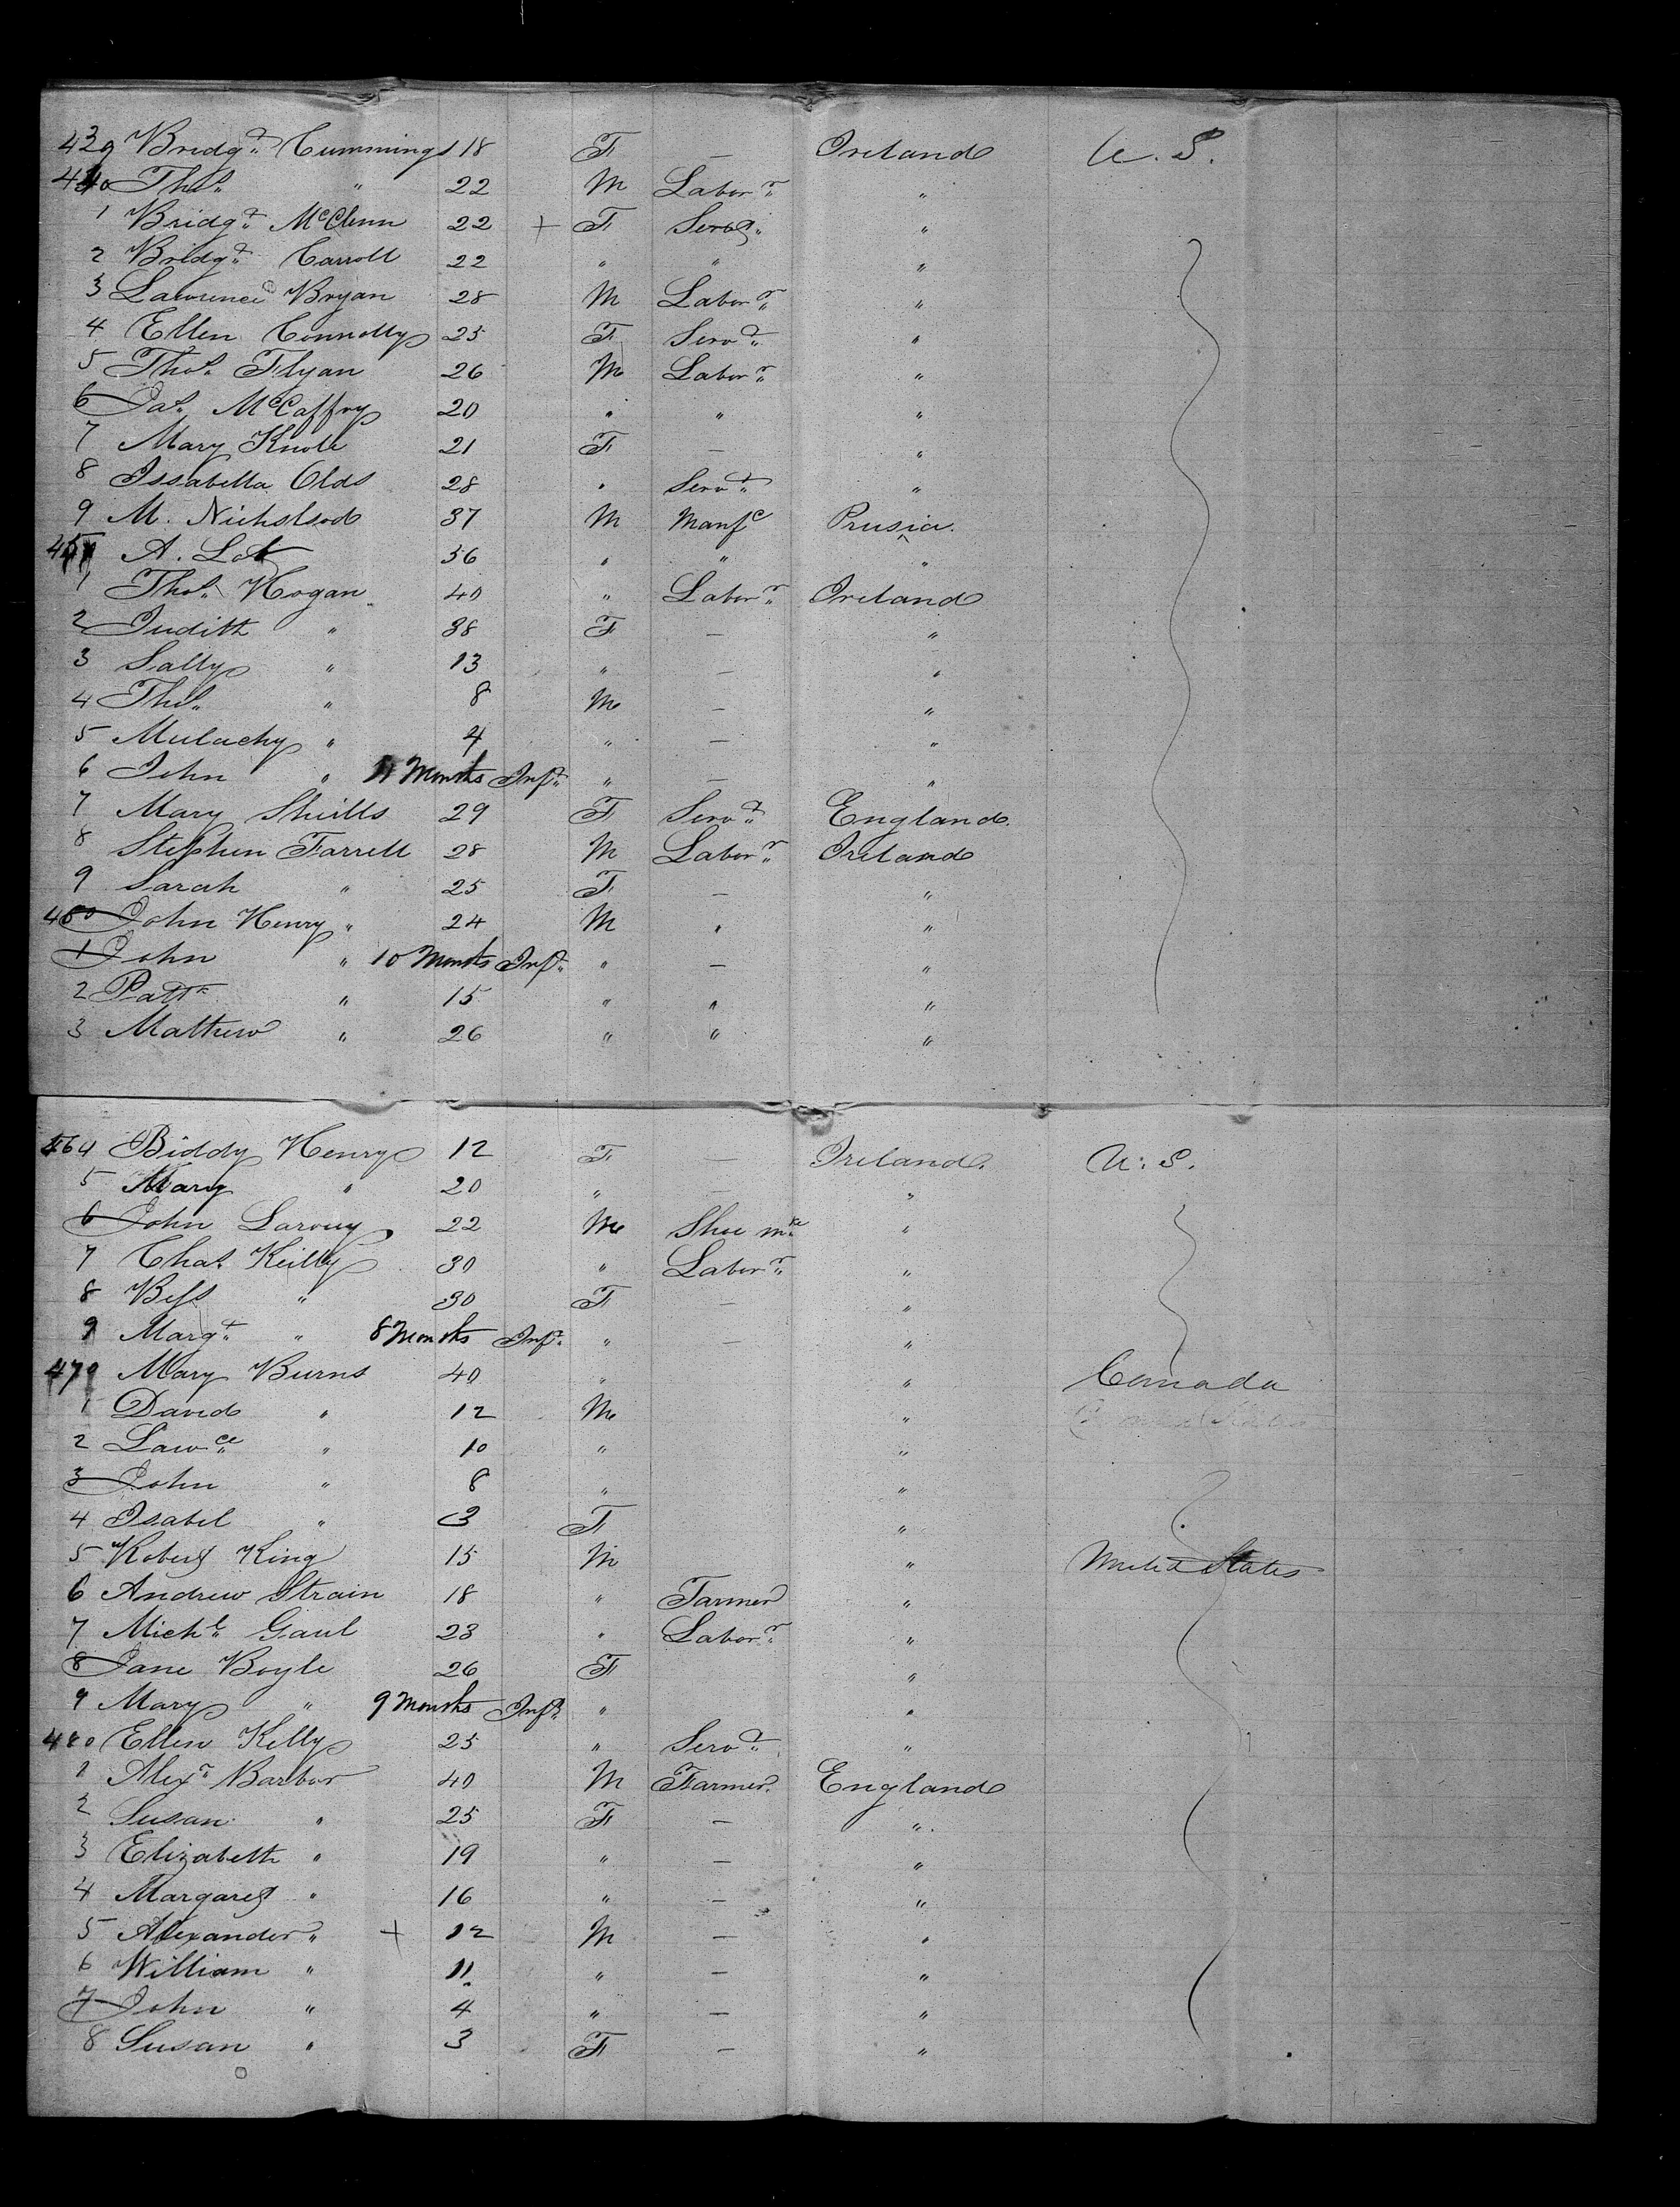 439 Bridgt. Cummings 18 F — Ireland U. S.
440 Thos. " 22 M Labor. "
1 Bridgt. McClunn 22 + F Servt. "
2 Bridgt. Carroll 22 " " "
3 Lawrence Bryan 28 M Labor. "
4 Ellen Connolly 25 F Servt. "
5 Thos. Flyan 26 M Labor. "
6 Jas. McCaffry 20 " " "
7 Mary Knole 21 F — "
8 Issabella Olds 28 " Servt. "
9 M. 37 M Manfc Prusia.
450 A. 36 " " "
1 Thos. Hogan 40 " Labor. Ireland
2 Judith " 38 F — "
3 Sally " 13 " — "
4 Thos. " 8 M — "
5 Mulachy " 4 " — "
6 John " 11 Months Inft. " — "
7 Mary Shills 29 F Servt. England
8 Stephen Farrell 28 M Labor. Ireland
9 Sarah " 25 F — "
460 John Henry " 24 M " "
1 John " 10 Months Inft. " — "
2 Pattk " 15 " " "
3 Mathew " 26 " " "
464 Biddy Henry 12 F — Ireland. U. S.
5 Mary " 20 " — "
6 John Larouy 22 M Shoe mkr "
7 Chas. Keilly 30 " Labor. "
8 Bess " 30 F — "
9 Margt. " 8 Months Inft. " — "
470 Mary Burns 40 " " Canada
1 David " 12 M "
2 Lawce " 10 " "
3 John " 8 " "
4 Isabel " 3 F "
5 Robert King 15 M " United States
6 Andrew Strain 18 " Farmer "
7 Michl. Gaul 23 " Labor. "
8 Jane Boyle 26 F "
9 Mary " 9 Months Inft. " "
480 Ellen Kelly 25 " Servt. "
1 Alexr. Barbor 40 M Farmer. England
2 Susan " 25 F — "
3 Elizabeth " 19 " — "
4 Margaret " 16 " — "
5 Alexander " + 12 M — "
6 William " 11 " — "
7 John " 4 " — "
8 Susan " 3 F — "